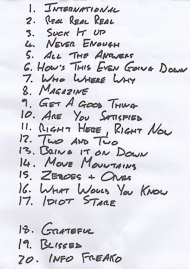 1. INTERNATIONAL
2. REAL REAL REAL
3. SUCK IT UP
4. NEVER ENOUGH
5. ALL THE ANSWERS
6. HOW'S THIS EVEN GOING DOWN
7. WHO WHERE WHY
8. MAGAZINE
9. GET A GOOD THING
10. ARE YOU SATISFIED
11. RIGHT HERE, RIGHT NOW
12. TWO AND TWO
13. BRING IT ON DOWN
14. MOVE MOUNTAINS
15. ZEROES + ONES
16. WHAT WOULD YOU KNOW
17. IDIOT STARE
18. GRATEFUL
19. BLISSED
20. INFO FREAKO